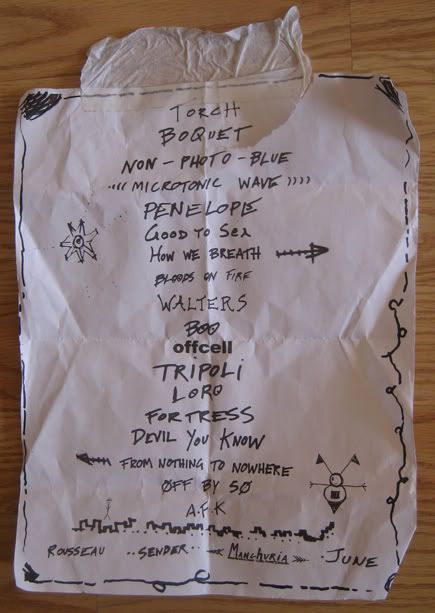 TORCH
BOQUET
NON-PHOTO-BLUE
MICROTONIC WAVE
PENELOPE
GOOD TO SEA
HOW WE BREATH
BLOODS ON FIRE
WALTERS
BOO
offcell
TRIPOLI
LORO
FORTRESS
DEVIL YOU KNOW
FROM NOTHING TO NOWHERE
ØFF BY 5Ø
A.F.K
ROUSSEAU ..SENDER.. MANCHURIA . JUNE